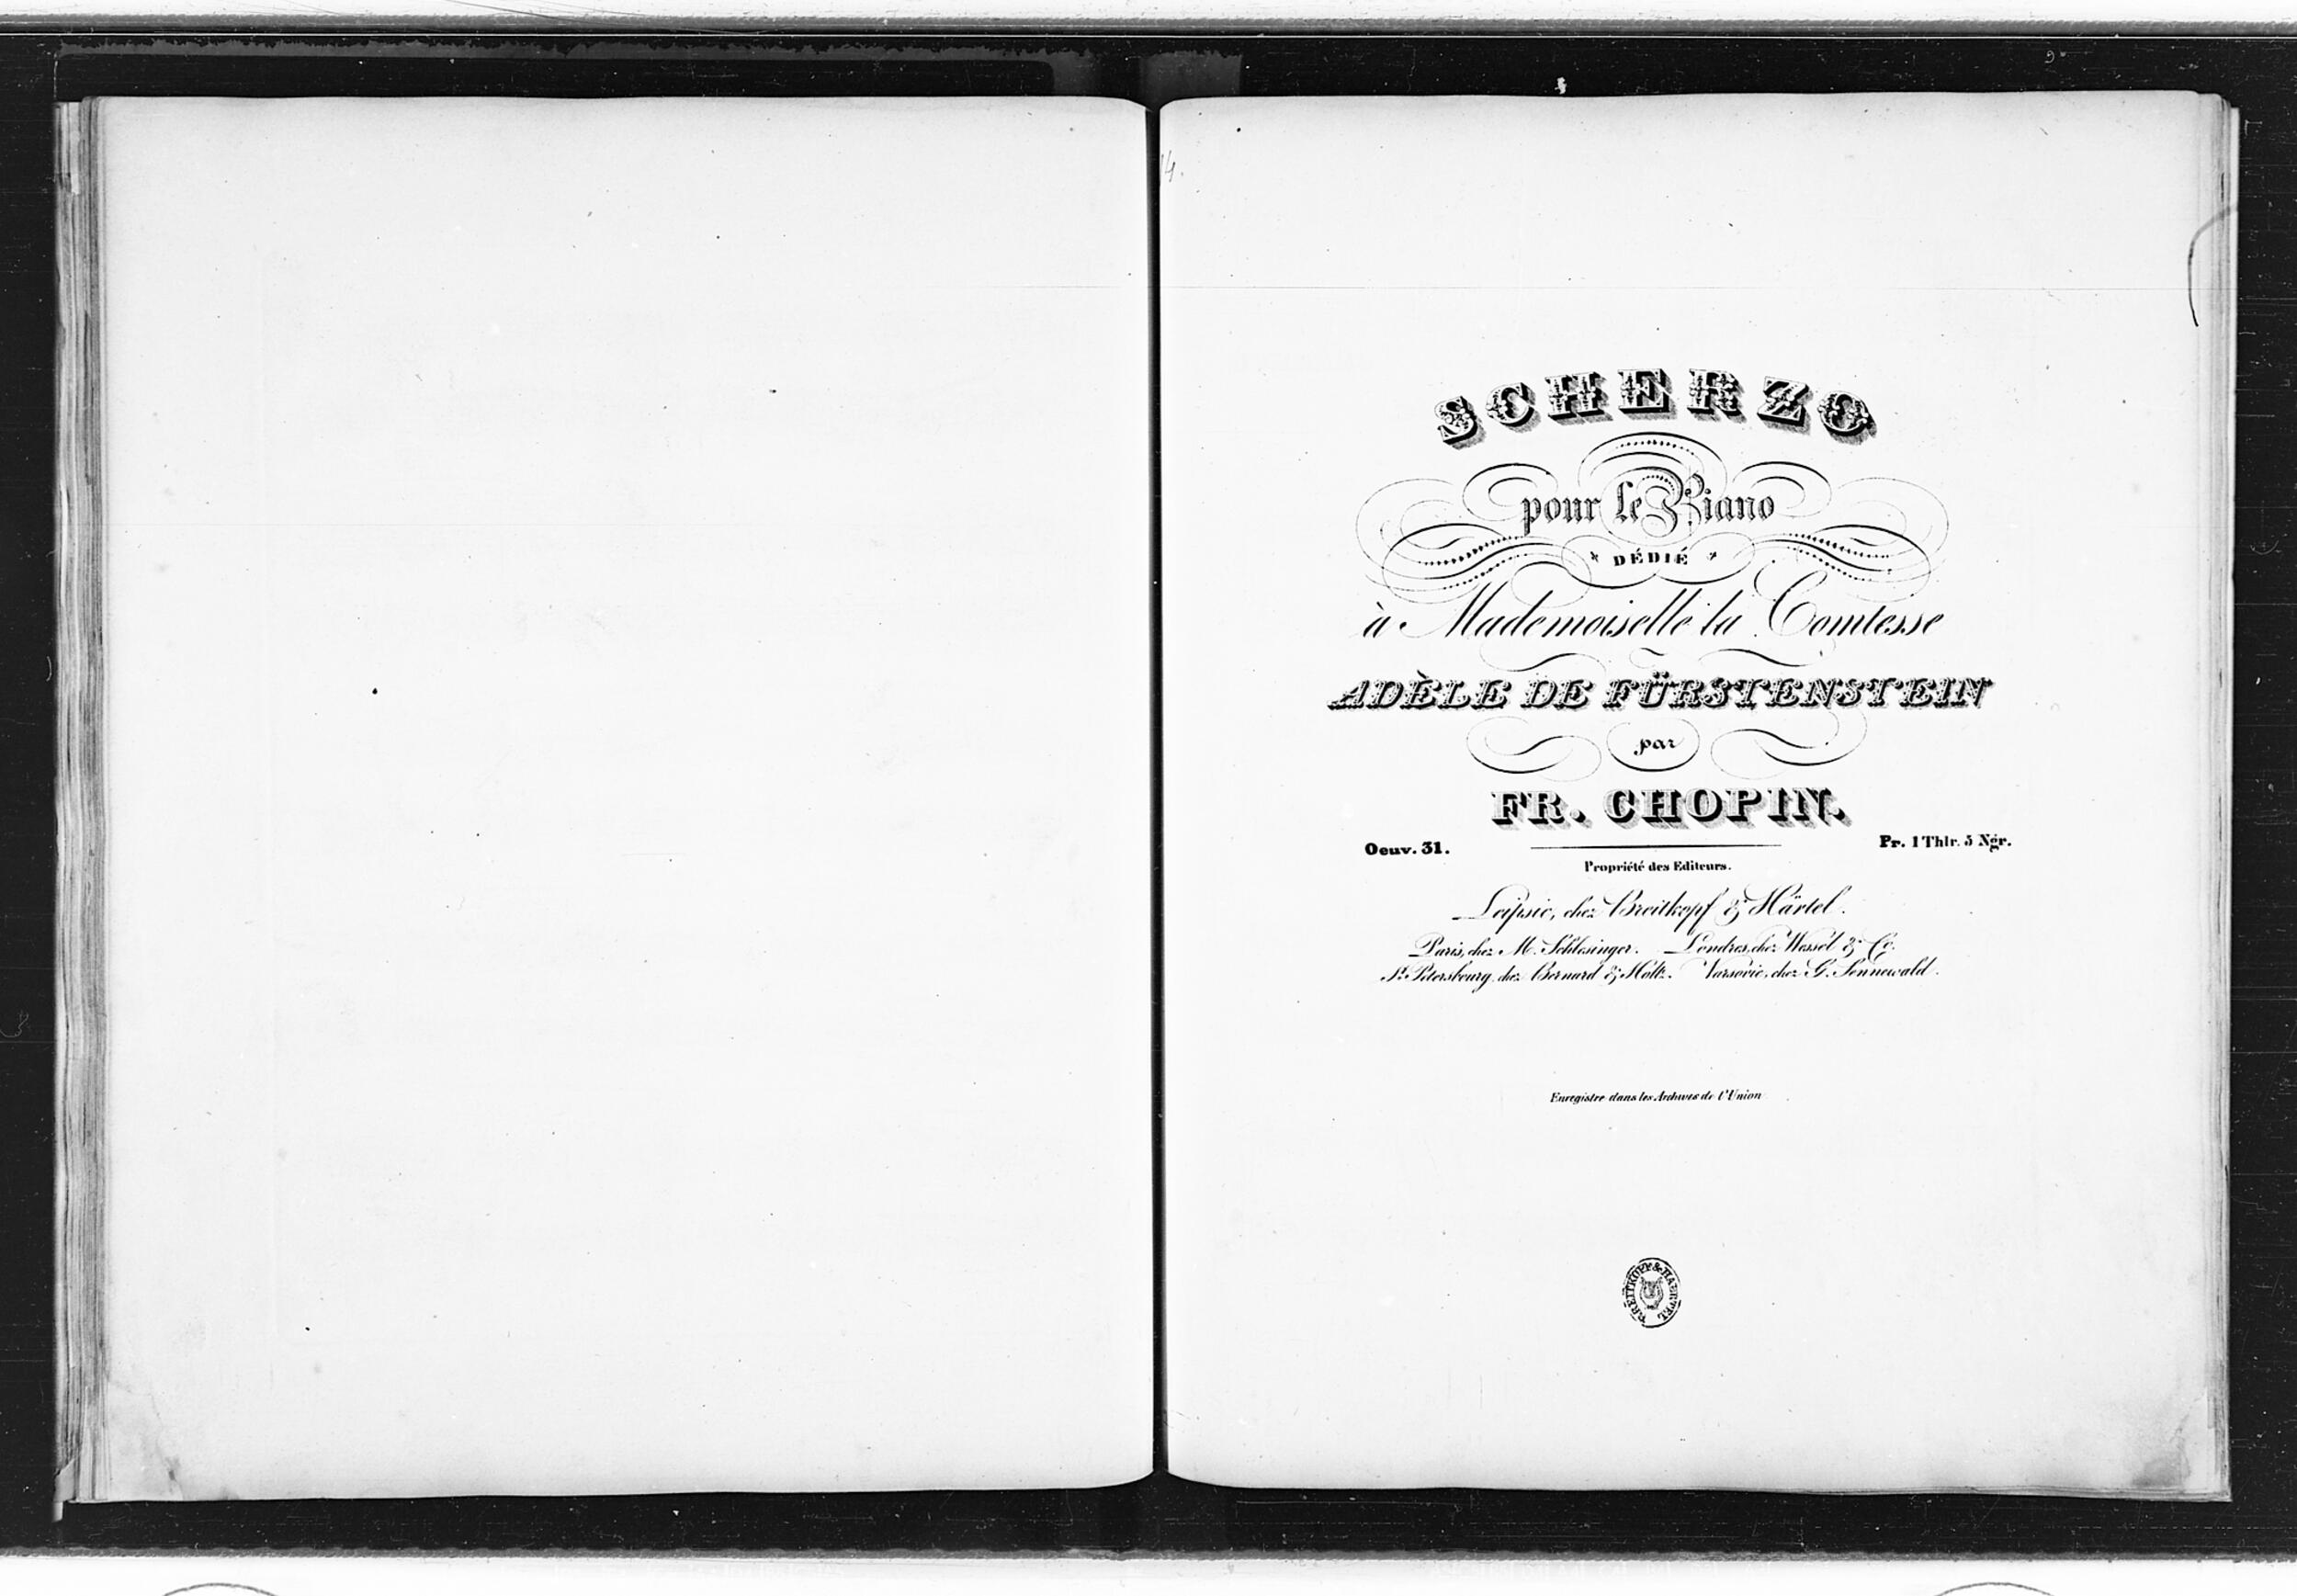 14.
SCHERZO
pour le Piano
DÉDIÉ
à Mademoiselle la Comtesse
ADÈLE DE FÜRSTENSTEIN
par
FR. CHOPIN.
Oeuv. 31. Pr. 1 Thlr. 5 Ngr.
Propriété des Editeurs.
Leipsic, chez Breitkopf & Härtel.
Paris, chez M. Schlesinger. Londres, chez Wessel & Co.
St. Petersbourg, chez Bernard & Holtz. Varsovie, chez G. Sennewald.
Enregistré dans les Archives de l'Union
BREITKOPF & HAERTEL